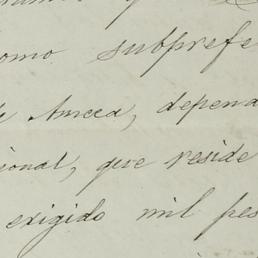 omo subprefe
Ameca, depend
ional, que reside
exigido mil pes